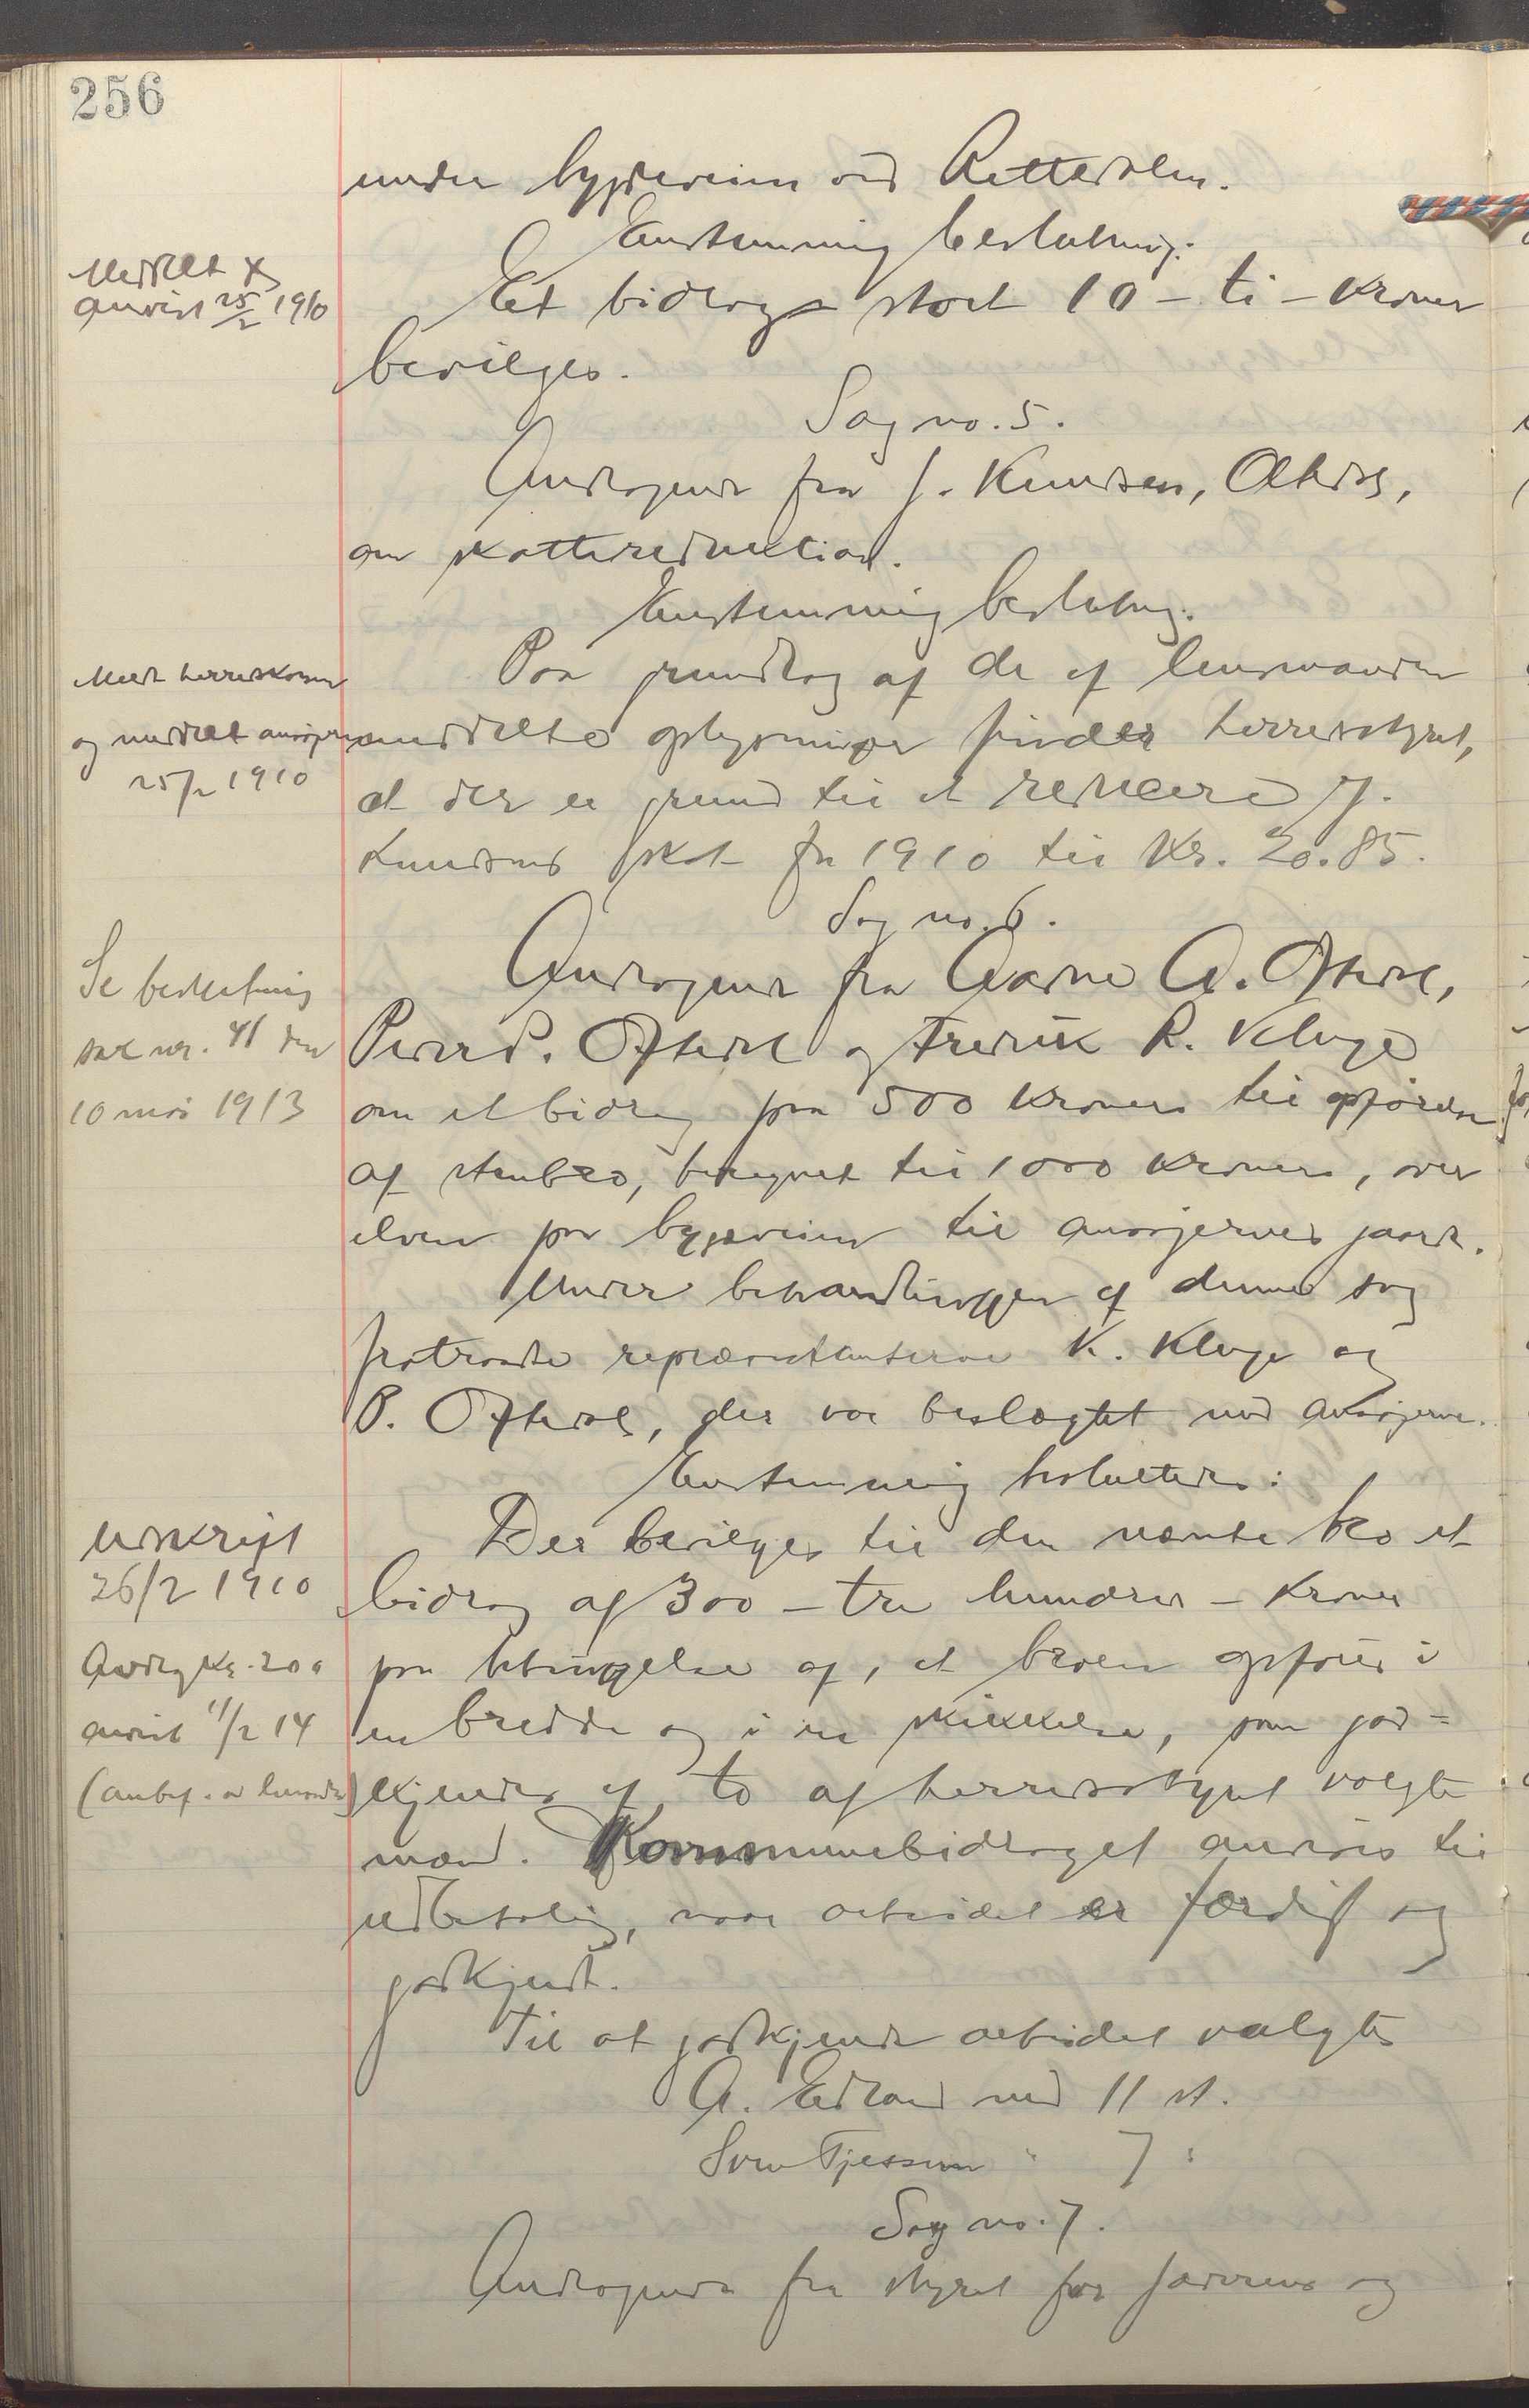 256
under bygdeveien ved Rettedalen.
Enstemmig beslutning:
Meddelt &
anvist 25/2 1910
Et bidrag stort 10 - ti - kroner
bevilges.
Sag no. 5.
Andragende fra J. Knudsen, Oltedal,
om skattereduktion.
Enstemmig beslutning:
Paa grundlag af de af lensmanden
Medt. herredskasser
og meddelt ansøger
25/2 1910
meddelte oplysninger finder herredsstyret,
at der er grund til at reducere J.
Knudsens skat for 1910 til Kr. 20.85.
Sag no. 6.
Se beslutning
sak nr. 41 den
10 mai 1913
Andragende fra Aadne A. Oftedal,
Peder P. Oftedal og Fredrik R. Kluge
om et bidrag paa 500 kroner til opførelse
af stenbro, beregnet til 1000 kroner, over
elven paa bygdeveien til ansøgernes gaarde.
Under behandlingen af denne sag
fratraadte repræsentanterne K. Kluge og
P. Oftedal, der var beslægtet med ansøgerne.
Enstemmig besluttedes:
Udskrift
26/2 1910
Der bevilges til den nævnte bro et
bidrag af 300 - tre hundrede - kroner
Avdrag Kr. 200
anvist 11/2 14
(anbef. av lensmd.)
paa betingelse af, at broen opføres i
en bredde og i en skikkelse, som god=
kjendes af to af herredsstyret valgte
mænd. Kommunebidraget anvises til
udbetaling, naar arbeidet er færdigt og
godkjendt.
Til at godkjende arbeidet valgtes
A. Edland med 11 st.
Sven Tjessem " 7 "
Sag no. 7.
Andragende fra styret for Jæderens og